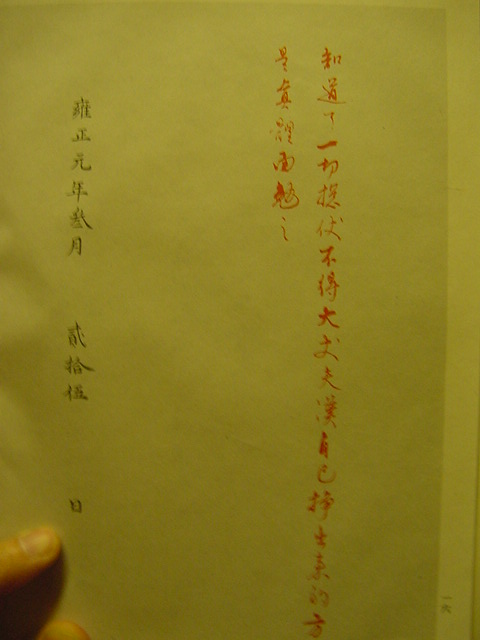 知道了一切仗不得大丈夫漢自己掙出來的方
是真體面勉之
雍正元年叁月 貳拾伍 日
一六